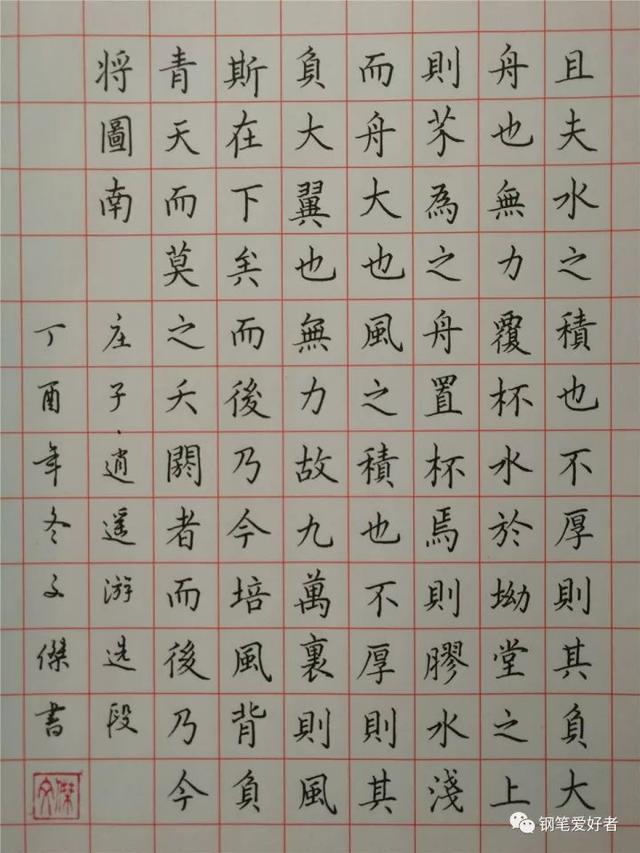 且夫水之積也不厚則其負大
舟也無力覆杯水於坳堂之上
則芥為之舟置杯焉則膠水淺
而舟大也風之積也不厚則其
負大翼也無力故九萬裏則風
斯在下矣而後乃今培風背負
青天而莫之夭閼者而後乃今
将圖南
庄子·逍遥游选段
丁酉年冬文傑書
文傑
钢笔爱好者